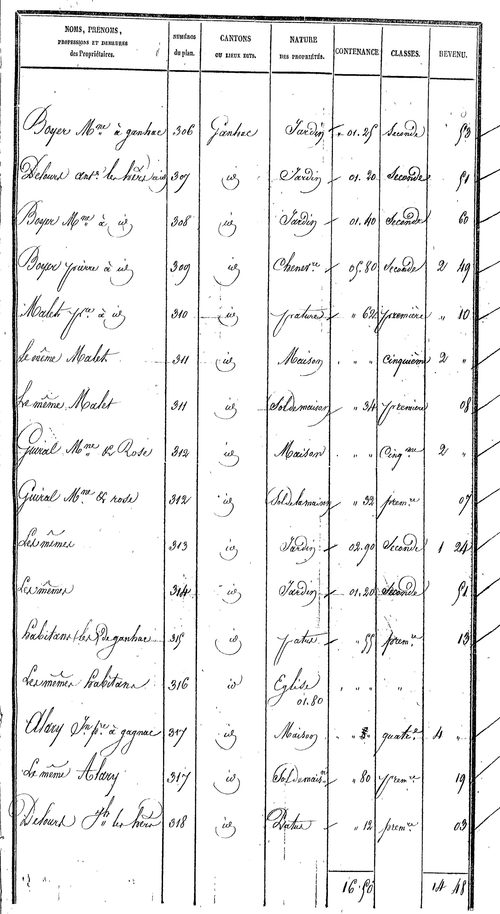 NOMS, PRENOMS, NUMÉROS CANTONS NATURE CONTENANCE CLASSES. REVENU.
PROFESSIONS ET DEMEURES du plan. OU LIEUX DITS. DES PROPRIÉTÉS.
des Propriétaires.
Boyer Mne à ganhac 306 Ganhac Jardin " 01.25 Seconde 53
Delours antne les hérs 307 id Jardin 01.20 Seconde 51
Boyer Mne à id 308 id Jardin 01.40 Seconde 60
Boyer pierre à id 309 id Chenvre 05.80 Seconde 2 49
Malet pre à id 310 id pature " 62 première " 10
Le même Malet 311 id Maison " " cinquième 2 "
Le même Malet 311 id Sol de maison " 34 premiere 08
Guiral Mne & Rose 312 id Maison " " Cinqme 2 "
Guiral Mne & rose 312 id Sol de la maison " 32 premre 07
Les mêmes 313 id Jardin 02.90 Seconde 1 24
Les mêmes 314 id Jardin 01.20 Seconde 51
habitans (les) de ganhac 315 id patus " 55 premre 13
Les mêmes habitans 316 id Eglise " " "
01.80
Alary Jn pre à gagnac 317 id Maison " quate 4 "
Le même Alary 317 id Sol de maison " 80 premre 19
Delours les hérs 318 id Patus " 12 premre 03
16.50 14 48